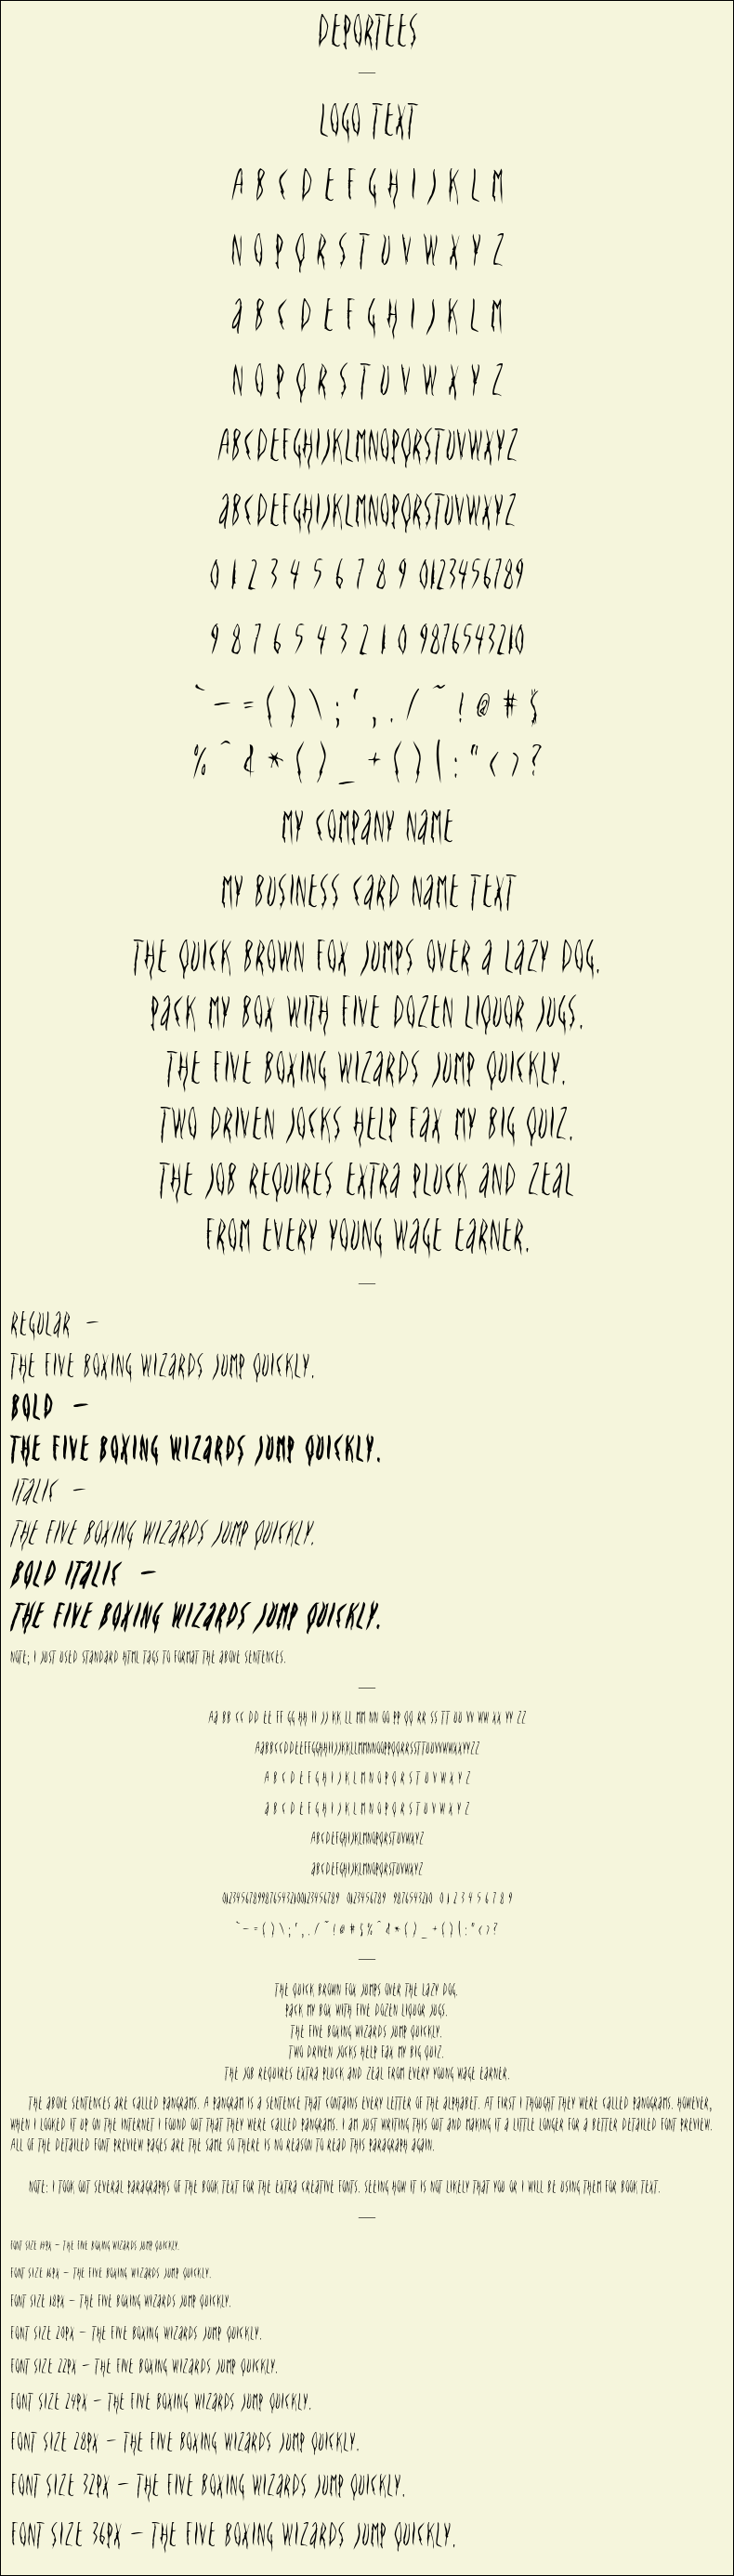 DEPORTEES
LOGO TEXT
A B C D E F G H I J K L M
N O P Q R S T U V W X Y Z
a B C D E F G H I J K L M
N O P Q R S T U V W X Y Z
ABCDEFGHIJKLMNOPQRSTUVWXYZ
aBCDEFGHIJKLMNOPQRSTUVWXYZ
0 1 2 3 4 5 6 7 8 9 0123456789
9 8 7 6 5 4 3 2 1 0 9876543210
` - = ( ) \ ; ' , . / ~ ! @ # $
% ^ & * ( ) _ + ( ) | : " < > ?
MY COMPaNY NaME
MY BUSINESS CaRD NaME TEXT
THE QUICK BROWN FOX JUMPS OVER a LaZY DOG.
PaCK MY BOX WITH FIVE DOZEN LIQUOR JUGS.
THE FIVE BOXING WIZaRDS JUMP QUICKLY.
TWO DRIVEN JOCKS HELP FaX MY BIG QUIZ.
THE JOB REQUIRES EXTRa PLUCK aND ZEaL
FROM EVERY YOUNG WaGE EaRNER.
REGULaR -
THE FIVE BOXING WIZaRDS JUMP QUICKLY.
BOLD -
THE FIVE BOXING WIZaRDS JUMP QUICKLY.
ITaLIC -
THE FIVE BOXING WIZaRDS JUMP QUICKLY.
BOLD ITaLIC -
THE FIVE BOXING WIZaRDS JUMP QUICKLY.
NOTE; I JUST USED STaNDaRD HTML TaGS TO FORMaT THE aBOVE SENTENCES.
Aa BB CC DD EE FF GG HH II JJ KK LL MM NN OO PP QQ RR SS TT UU VV WW XX YY ZZ
AaBBCCDDEEFFGGHHIIJJKKLLMMNNOOPPQQRRSSTTUUVVWWXXYYZZ
A B C D E F G H I J K L M N O P Q R S T U V W X Y Z
a B C D E F G H I J K L M N O P Q R S T U V W X Y Z
ABCDEFGHIJKLMNOPQRSTUVWXYZ
aBCDEFGHIJKLMNOPQRSTUVWXYZ
012345678998765432100123456789 0123456789 9876543210 0 1 2 3 4 5 6 7 8 9
` - = ( ) \ ; ' , . / ~ ! @ # $ % ^ & * ( ) _ + ( ) | : " < > ?
THE QUICK BROWN FOX JUMPS OVER THE LaZY DOG.
PaCK MY BOX WITH FIVE DOZEN LIQUOR JUGS.
THE FIVE BOXING WIZaRDS JUMP QUICKLY.
TWO DRIVEN JOCKS HELP FaX MY BIG QUIZ.
THE JOB REQUIRES EXTRa PLUCK aND ZEaL FROM EVERY YOUNG WaGE EaRNER.
THE aBOVE SENTENCES aRE CaLLED PaNGRaMS. A PaNGRaM IS a SENTENCE THaT CONTaINS EVERY LETTER OF THE aLPHaBET. AT FIRST I THOUGHT THEY WERE CaLLED PaNOGRaMS. HOWEVER,
WHEN I LOOKED IT UP ON THE INTERNET I FOUND OUT THaT THEY WERE CaLLED PaNGRaMS. I aM JUST WRITING THIS OUT aND MaKING IT a LITTLE LONGER FOR a BETTER DETaILED FONT PREVIEW.
ALL OF THE DETaILED FONT PREVIEW PaGES aRE THE SaME SO THERE IS NO REaSON TO REaD THIS PaRaGRaPH aGaIN.
NOTE: I TOOK OUT SEVERaL PaRaGRaPHS OF THE BOOK TEXT FOR THE EXTRa CREaTIVE FONTS. SEEING HOW IT IS NOT LIKELY THaT YOU OR I WILL BE USING THEM FOR BOOK TEXT.
FONT SIZE 14PX - THE FIVE BOXING WIZaRDS JUMP QUICKLY.
FONT SIZE 16PX - THE FIVE BOXING WIZaRDS JUMP QUICKLY.
FONT SIZE 18PX - THE FIVE BOXING WIZaRDS JUMP QUICKLY.
FONT SIZE 20PX - THE FIVE BOXING WIZaRDS JUMP QUICKLY.
FONT SIZE 22PX - THE FIVE BOXING WIZaRDS JUMP QUICKLY.
FONT SIZE 24PX - THE FIVE BOXING WIZaRDS JUMP QUICKLY.
FONT SIZE 28PX - THE FIVE BOXING WIZaRDS JUMP QUICKLY.
FONT SIZE 32PX - THE FIVE BOXING WIZaRDS JUMP QUICKLY.
FONT SIZE 36PX - THE FIVE BOXING WIZaRDS JUMP QUICKLY.